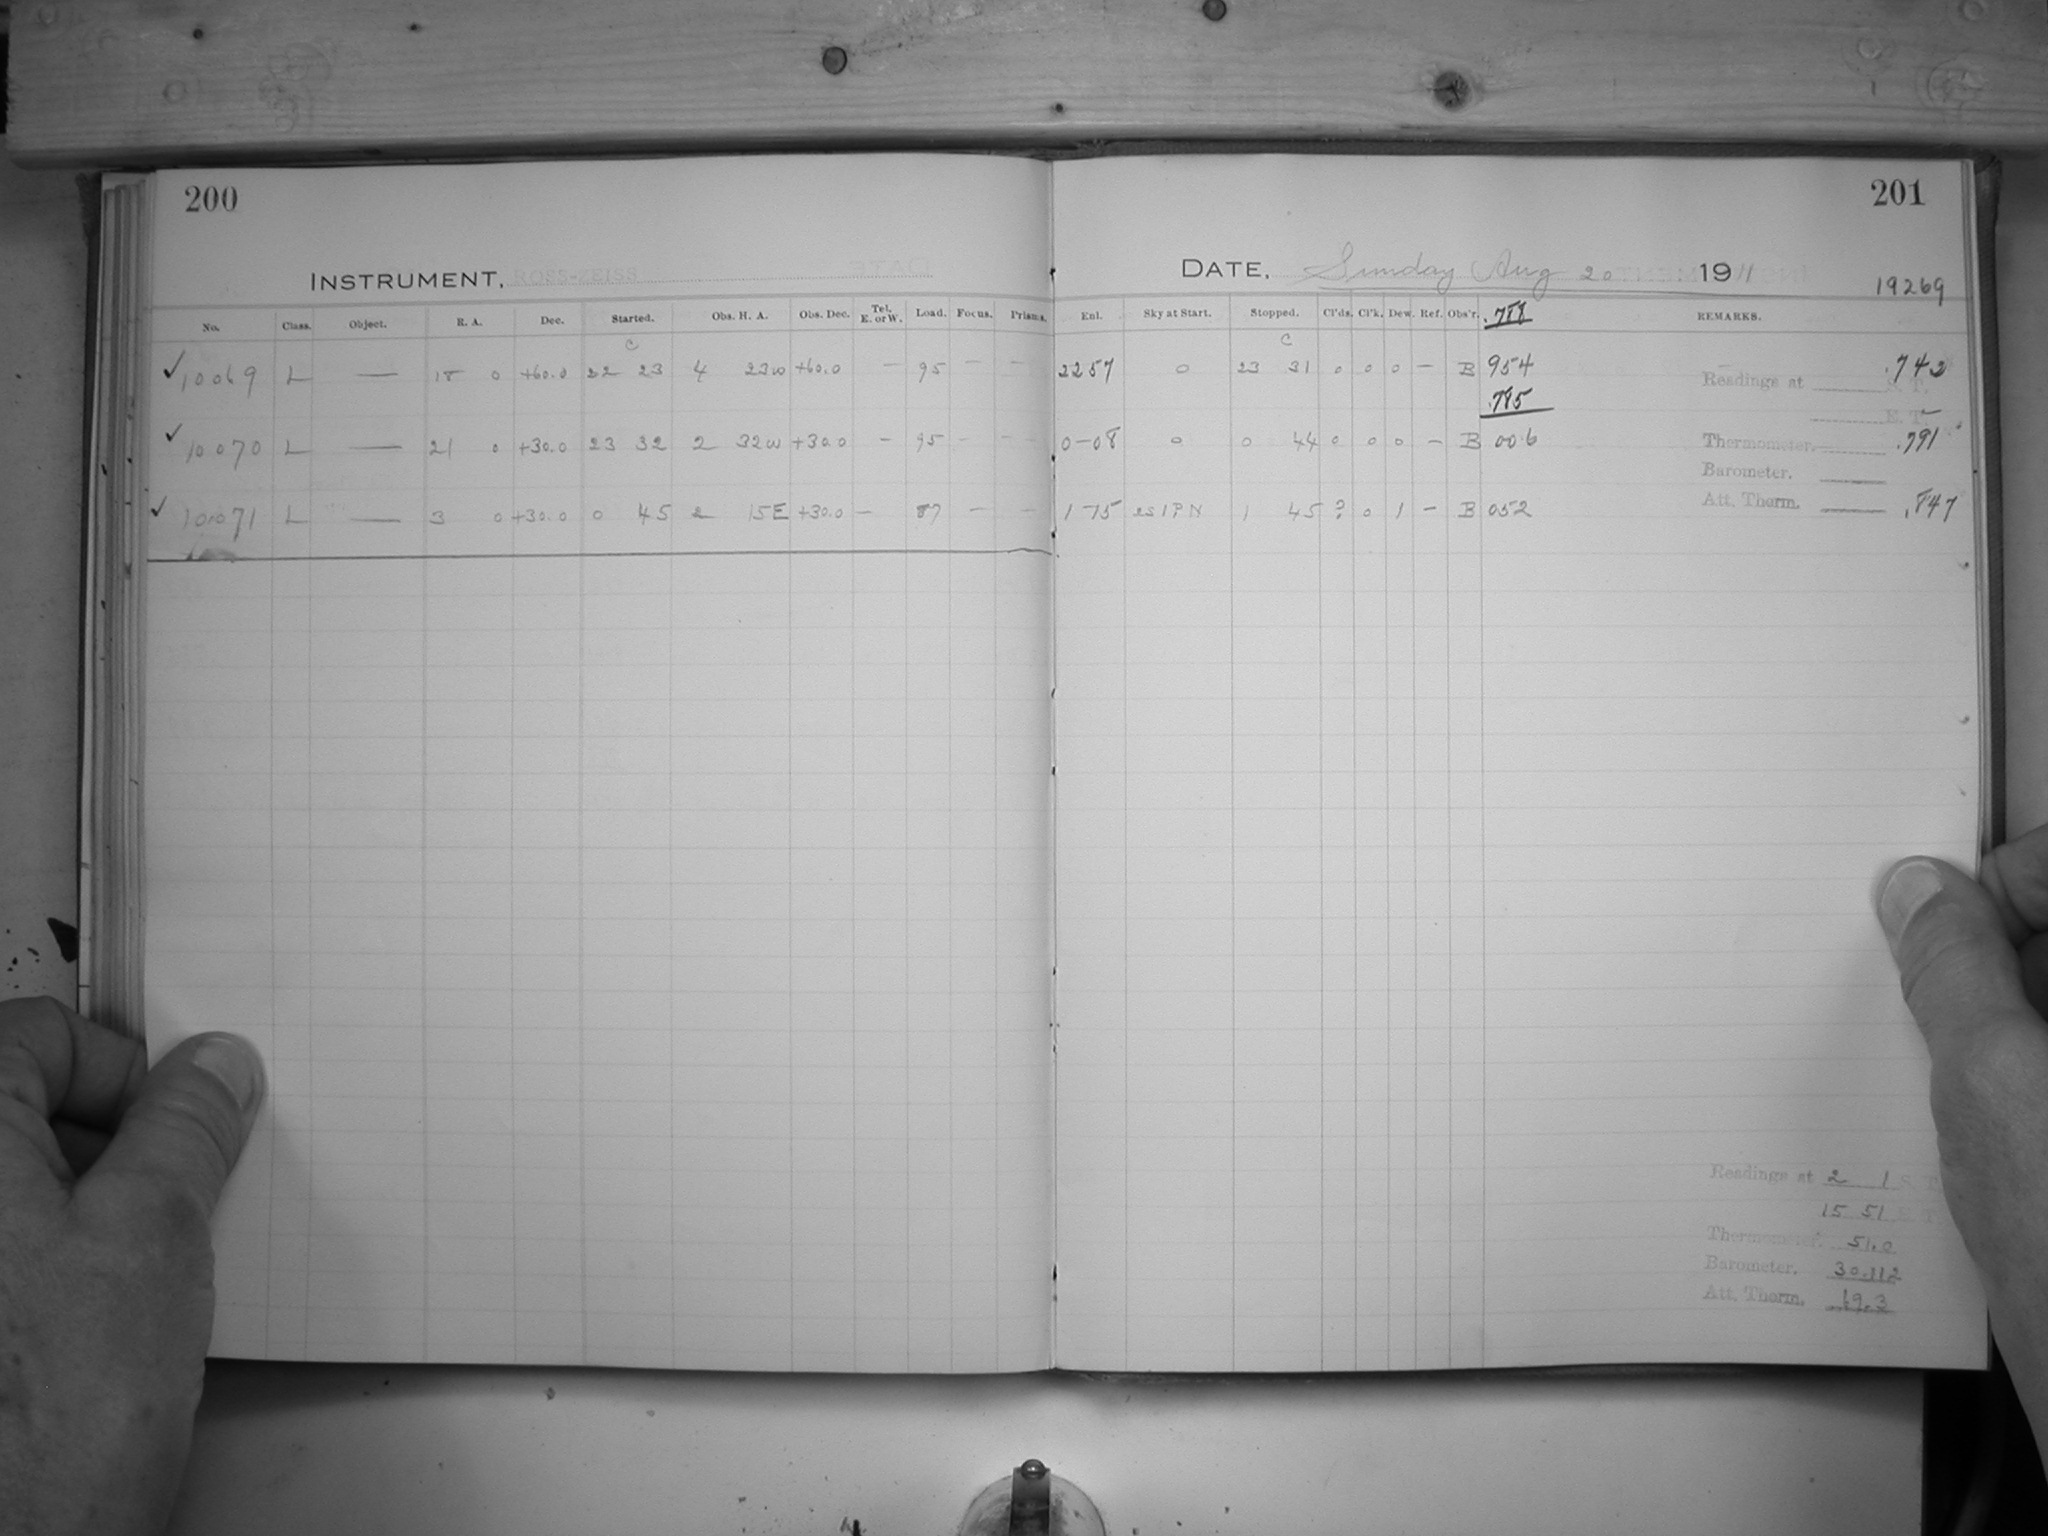 200
INSTRUMENT, ROSS-ZEISS
No. Class. Object. R. A. Dec. Started. Obs. H. A. Obs. Dec. Tel. E. or W. Load. Focus. Prisms.
C
✓ 10069 L — 18 0 +60.0 22 23 4 23W +60.0 — 95 — —
✓ 10070 L — 21 0 +30.0 23 32 2 32W +30.0 — 95 — —
✓ 10071 L — 3 0 +30.0 0 45 2 15E +30.0 — 87 — —
201
DATE, Sunday Aug 20 1911
19269
Enl. Sky at Start. Stopped. Cl'ds. Cl'k. Dew. Ref. Obs'r. .788 REMARKS.
C
2257 0 23 31 0 0 0 — B 954 .742
.785
Readings at S. T.
E. T.
0-08 0 0 44 0 0 0 — B 006 Thermometer. .791
Barometer.
Att. Therm. .847
1 15 2S1PN 1 45 ? 0 1 — B 052
Readings at 2 1 S. T.
15 51 E. T.
Thermometer. 51.0
Barometer. 30.112
Att. Therm. 69.3